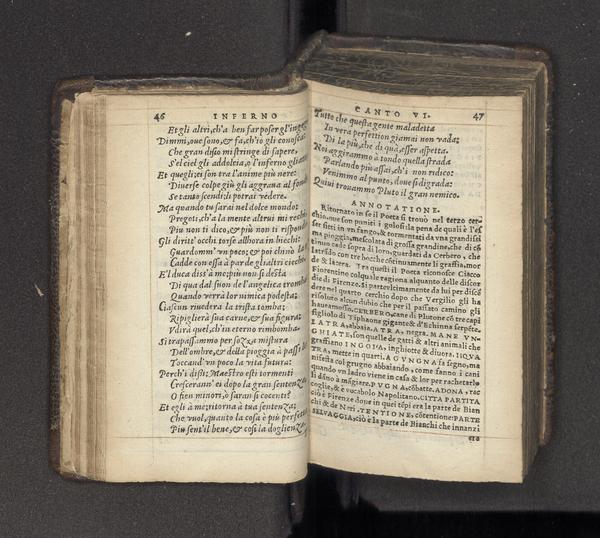 46 INFERNO
Et gli altri, ch'a ben far poser gl'ingegni
Dimmi, oue sono, & fa, ch'io gli conosca:
Che gran disio mi stringe di sapere,
S'el ciel gli addolcia, o l'inferno gli
Et quegli: ei son tra l'anime piu nere:
Diuerse colpe giù gli aggraua al fondo
Se tanto scendi, li potrai vedere.
Ma quando tu sarai nel dolce mondo;
Pregoti, ch'a la mente altrui mi rechi
Piu non ti dico, & più non ti rispondo
Gli diritt'occhi torse allhora in biechi:
Guardomm'vn poco; & poi chinò la
Cadde con essa à par de gli altri ciechi.
E'l duca diss'à me; più non si desta
Di qua dal suon de l'angelica tromba
Quando verrà lor nimica podesta;
Ciascun riuedera la trista tomba;
Ripiglierà sua carne, & sua figura;
Vdirà quel, ch'in eterno rimbomba.
Si trapassammo per sozza mistura
Dell'ombre, & della pioggia à passi
Toccand'vn poco la vita futura:
Perch'i dissi; Maestro esti tormenti
Crescerann'ei dopo la gran sentenza,
O fien minori, ò saran si cocenti?
Et egli à me; ritorna à tua scienza;
Che vuol, quanto la cosa è più perfetta
Piu sent'il bene, & cosi la doglienza
CANTO VI. 47
Tutto che questa gente maladetta
In vera perfettion giamai non vada;
Di là più, che di quà, esser aspetta.
Noi aggirammo à tondo quella strada
Parlando più assai, ch'i non ridico:
Venimmo al punto, doue si digrada:
Quiui trouammo Pluto il gran nemico.
ANNOTATIONE.
Ritornato in se il Poeta si trouò nel terzo cer-
chio, oue son puniti i golosi: la pena de quali è l'es
ser fitti in vn fango, & tormentati da vna grandissi
ma pioggia, mescolata di grossa grandine, che di cō
tinuo cade sopra di loro, guardati da Cerbero, che
latrādo con tre bocche cōtinuamente li graffia, mor
de & lacera. Tra questi il Poeta riconosce Ciacco
Fiorentino col quale ragiona alquanto delle discor
die di Firenze. si partì ultimamente da lui per discē
dere nel quarto cerchio dopo che Vergilio gli ha
risoluto alcun dubio che per il passato camino gli
haueamosso, CERBERO, cane di Plutone cō tre capi
figliuolo di Tiphaone gigante & d'Echinna serpēte.
LATRA, abbaia. ATRA, negra. MANE VN-
GHIATE, son quelle de gatti & altri animali che
graffiano INGOIA, inghiotte & diuora. ISQVA
TRA, mette in quarti. AGVNGNA fa segno, ma
nifesta col grugno abbaiando, come fanno i cani
quando vn ladro viene in casa & lor per rachetarlo
si dāno à māgiare. PVGNA, cōbatte. ADONA, rac
coglie, & è vocabolo Napolitano. CITTA PARTITA
cioè Firenze doue in quei tēpi era la parte de Bian
chi & de Neri. TENTIONE, cōtentione: PARTE
SELVAGGIA, ciò è la parte de Bianchi che innanzi
era